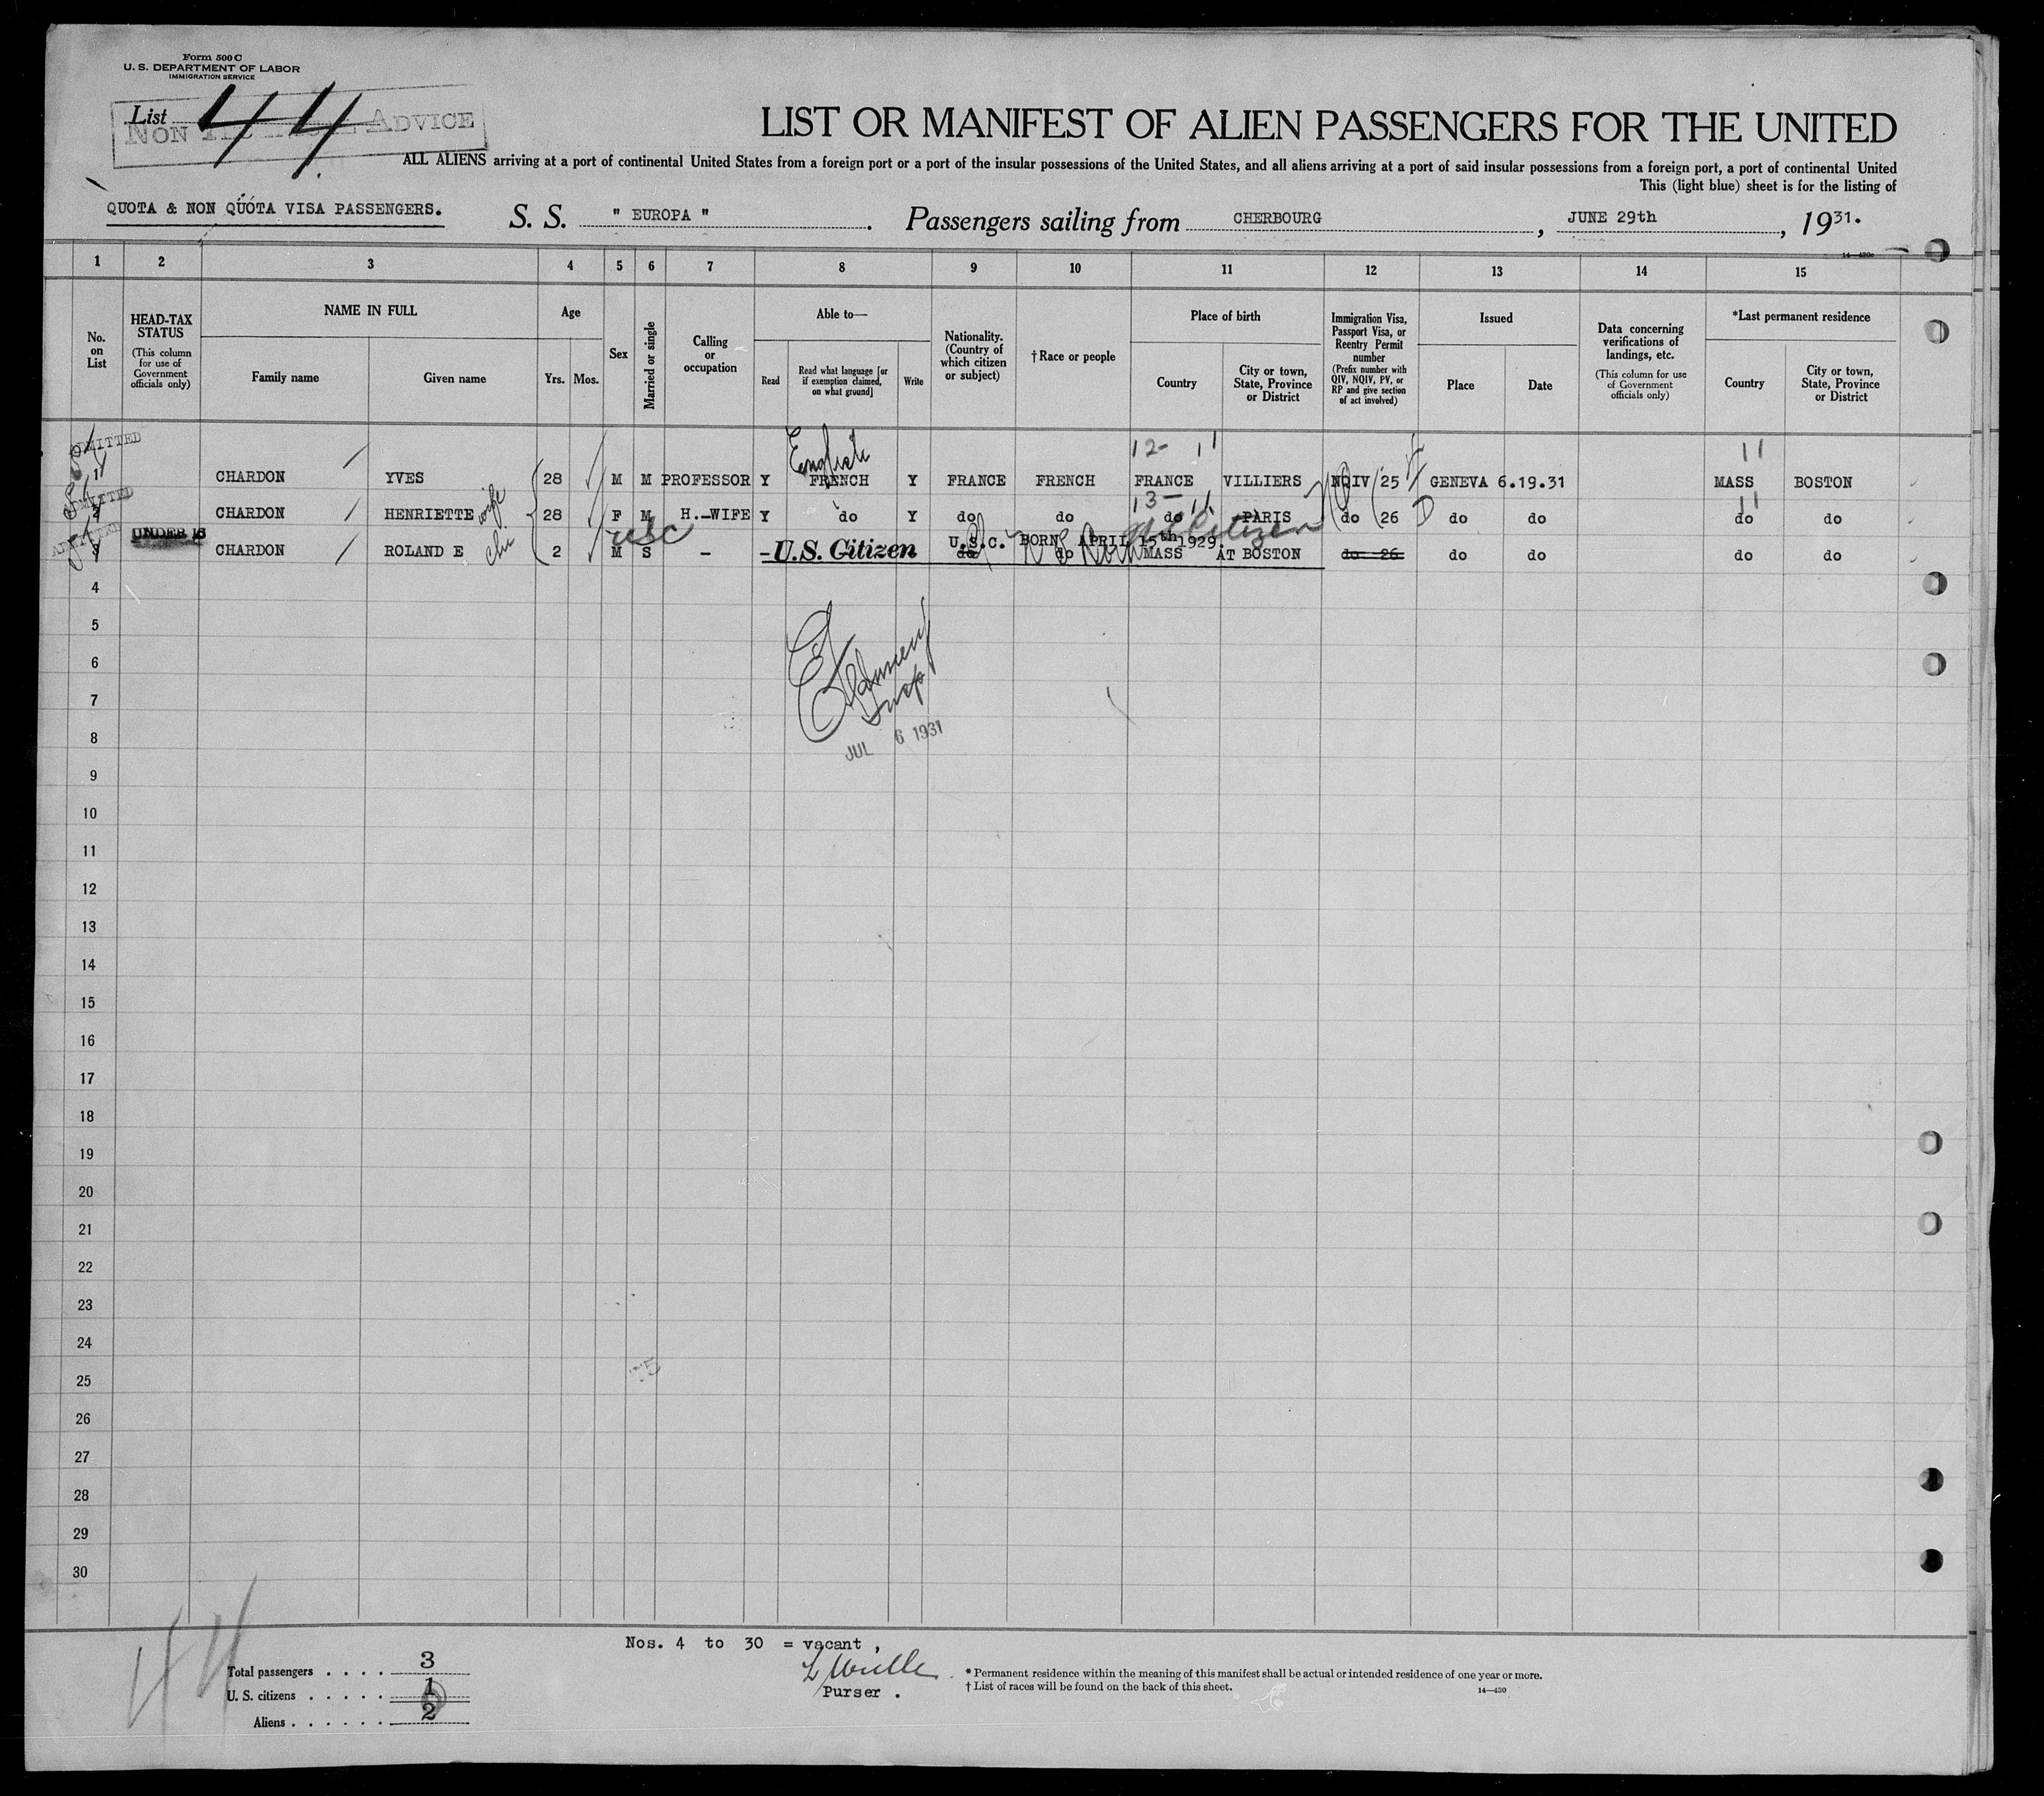 Form 500 C
U. S. DEPARTMENT OF LABOR
IMMIGRATION SERVICE
List 44
NON ADVICE
LIST OR MANIFEST OF ALIEN PASSENGERS FOR THE UNITED
ALL ALIENS arriving at a port of continental United States from a foreign port or a port of the insular possessions of the United States, and all aliens arriving at a port of said insular possessions from a foreign port, a port of continental United
This (light blue) sheet is for the listing of
QUOTA & NON QUOTA VISA PASSENGERS. S. S. " EUROPA ". Passengers sailing from CHERBOURG, JUNE 29th, 1931.
14—430c
1 2 3 4 5 6 7 8 9 10 11 12 13 14 15
No. on List
HEAD-TAX STATUS (This column for use of Government officials only)
NAME IN FULL Family name Given name
Age Yrs. Mos.
Sex
Married or single
Calling or occupation
Able to— Read Read what language [or if exemption claimed, on what ground] Write
Nationality. (Country of which citizen or subject)
†Race or people
Place of birth Country City or town, State, Province or District
Immigration Visa, Passport Visa, or Reentry Permit number (Prefix number with QIV, NQIV, PV, or RP and give section of act involved)
Issued Place Date
Data concerning verifications of landings, etc. (This column for use of Government officials only)
*Last permanent residence Country City or town, State, Province or District
ADMITTED English 12- 11 11
1 CHARDON YVES 28 M M PROFESSOR Y FRENCH Y FRANCE FRENCH FRANCE VILLIERS NQIV 25 GENEVA 6.19.31 MASS BOSTON
ADMITTED wife 13- 11 11
2 CHARDON HENRIETTE 28 F M H.-WIFE Y do Y do do do PARIS do 26 D do do do do
ADMITTED UNDER 16 usc U.S.C. BORN APRIL 15th 1929. Citizen
3 CHARDON ROLAND E 2 M S - - U.S. Citizen do do MASS AT BOSTON do 26 do do do do
4
5
6
7
JUL 6 1931
8
9
10
11
12
13
14
15
16
17
18
19
20
21
22
23
24
25
26
27
28
29
30
44
Nos. 4 to 30 = vacant,
Purser.
Total passengers . . . . 3
U. S. citizens . . . . . 1
Aliens . . . . . . 2
* Permanent residence within the meaning of this manifest shall be actual or intended residence of one year or more.
† List of races will be found on the back of this sheet.
14—430